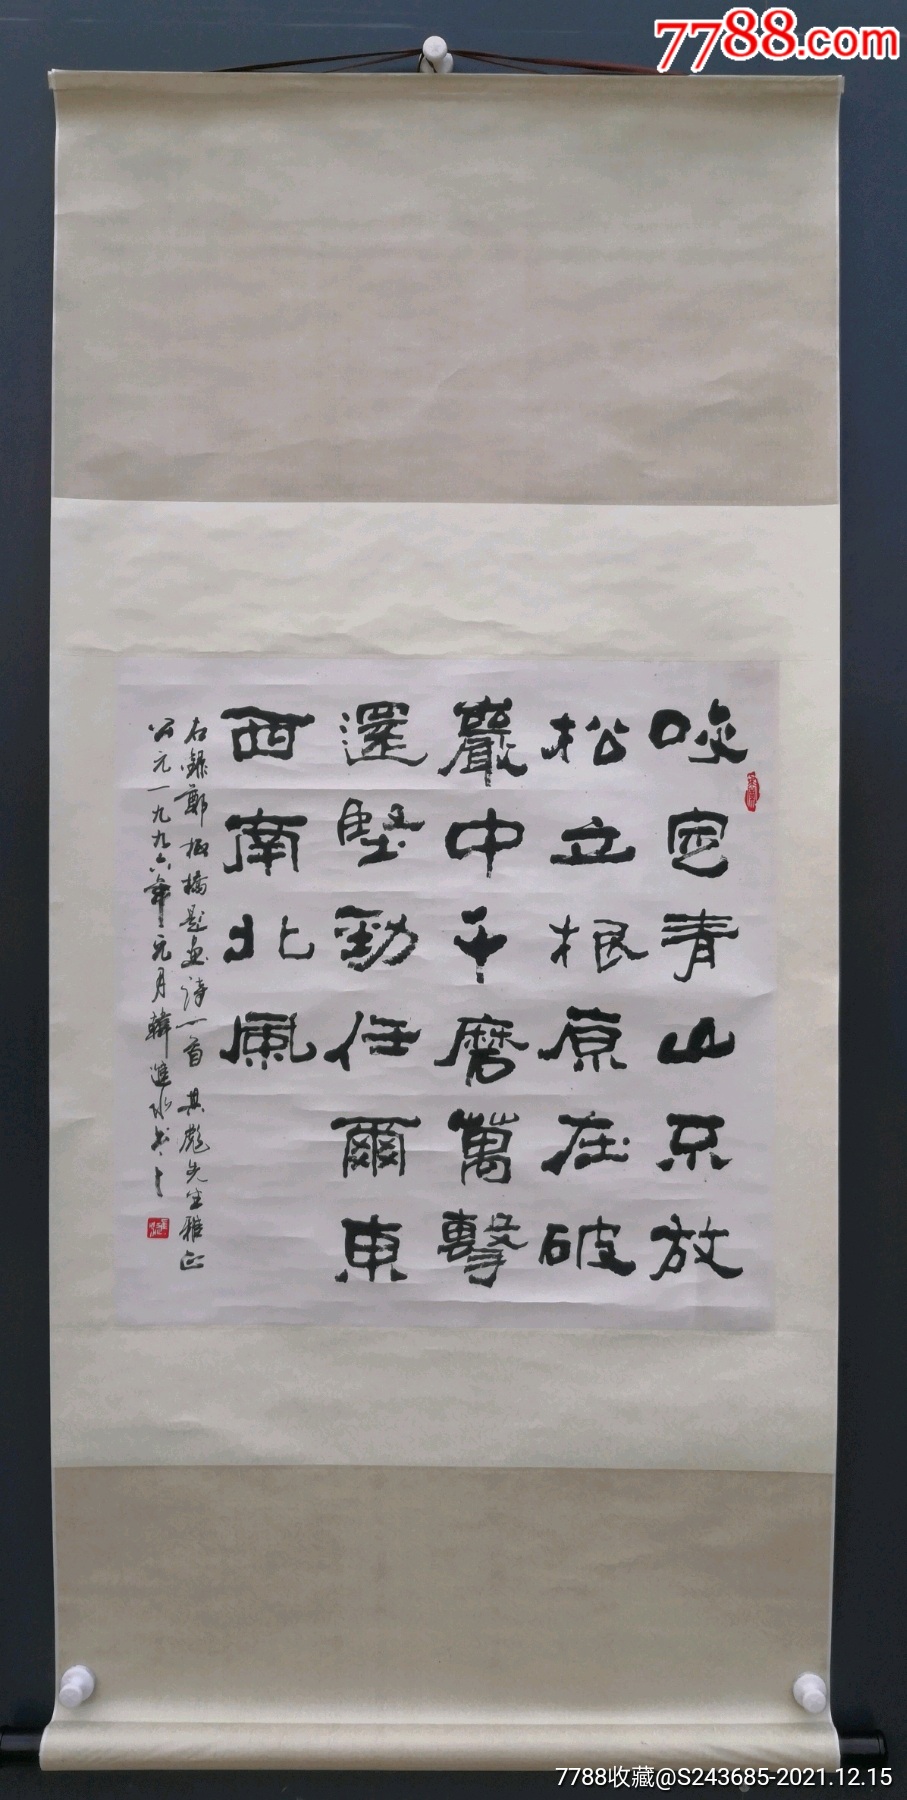 7788.com
咬定青山不放
松立根原在破
巖中千磨萬擊
還堅勁任爾東
西南北風
右錄鄭板橋題畫詩一首 其彪先生雅正
公元一九九六年元月韓進水书
7788收藏@S243685-2021.12.15